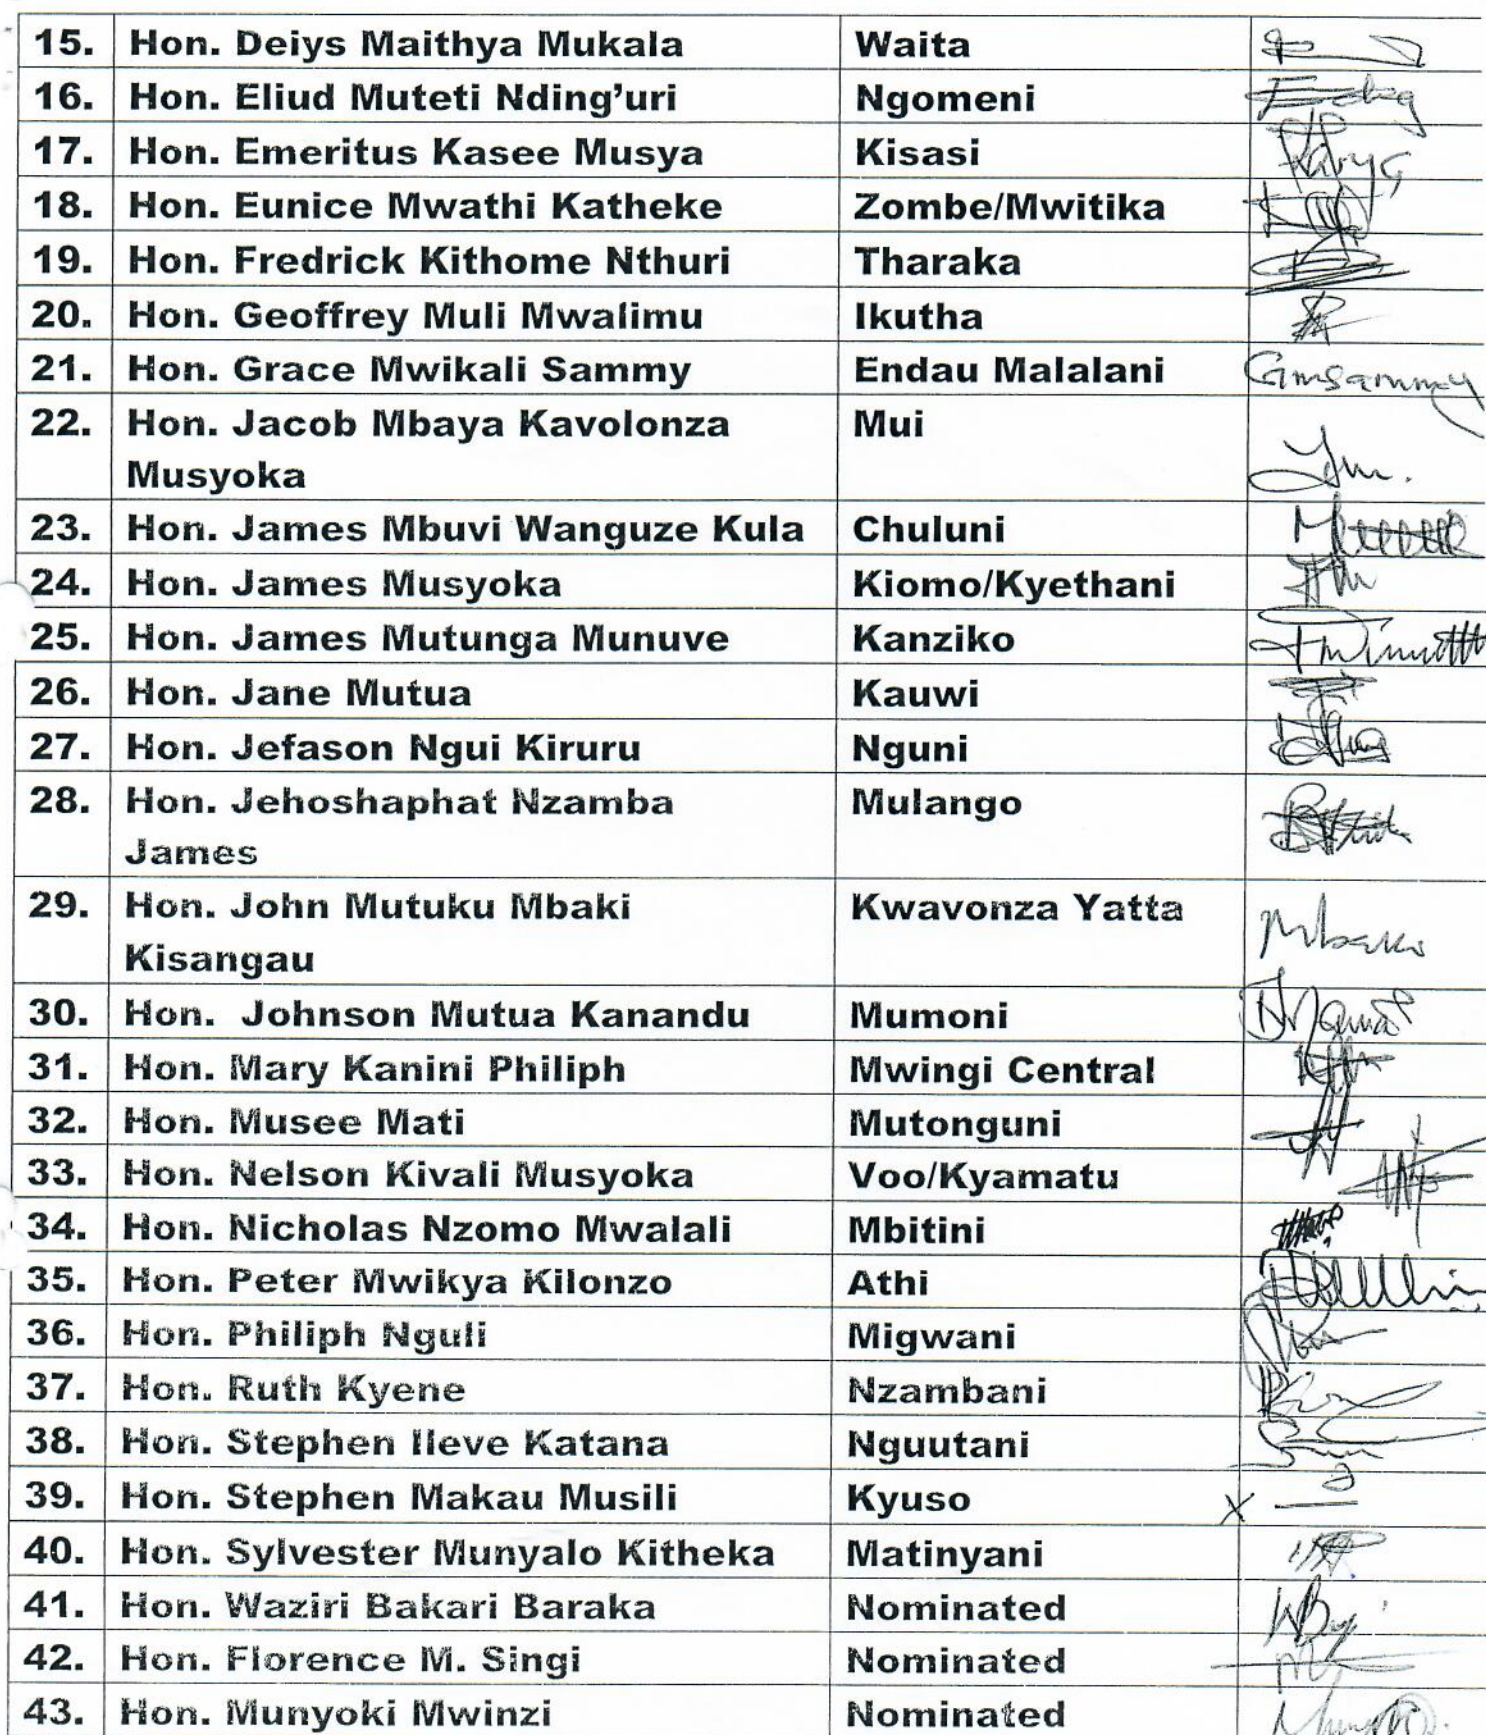 15. Hon. Deiys Maithya Mukala Waita
16. Hon. Eliud Muteti Nding'uri Ngomeni
17. Hon. Emeritus Kasee Musya Kisasi
18. Hon. Eunice Mwathi Katheke Zombe/Mwitika
19. Hon. Fredrick Kithome Nthuri Tharaka
20. Hon. Geoffrey Muli Mwalimu Ikutha
21. Hon. Grace Mwikali Sammy Endau Malalani Gmsammy
22. Hon. Jacob Mbaya Kavolonza Mui
Musyoka
23. Hon. James Mbuvi Wanguze Kula Chuluni
24. Hon. James Musyoka Kiomo/Kyethani
25. Hon. James Mutunga Munuve Kanziko
26. Hon. Jane Mutua Kauwi
27. Hon. Jefason Ngui Kiruru Nguni
28. Hon. Jehoshaphat Nzamba Mulango
James
29. Hon. John Mutuku Mbaki Kwavonza Yatta
Kisangau
30. Hon. Johnson Mutua Kanandu Mumoni
31. Hon. Mary Kanini Philiph Mwingi Central
32. Hon. Musee Mati Mutonguni
33. Hon. Nelson Kivali Musyoka Voo/Kyamatu
34. Hon. Nicholas Nzomo Mwalali Mbitini
35. Hon. Peter Mwikya Kilonzo Athi
36. Hon. Philiph Nguli Migwani
37. Hon. Ruth Kyene Nzambani
38. Hon. Stephen Ileve Katana Nguutani
39. Hon. Stephen Makau Musili Kyuso X
40. Hon. Sylvester Munyalo Kitheka Matinyani
41. Hon. Waziri Bakari Baraka Nominated
42. Hon. Florence M. Singi Nominated
43. Hon. Munyoki Mwinzi Nominated